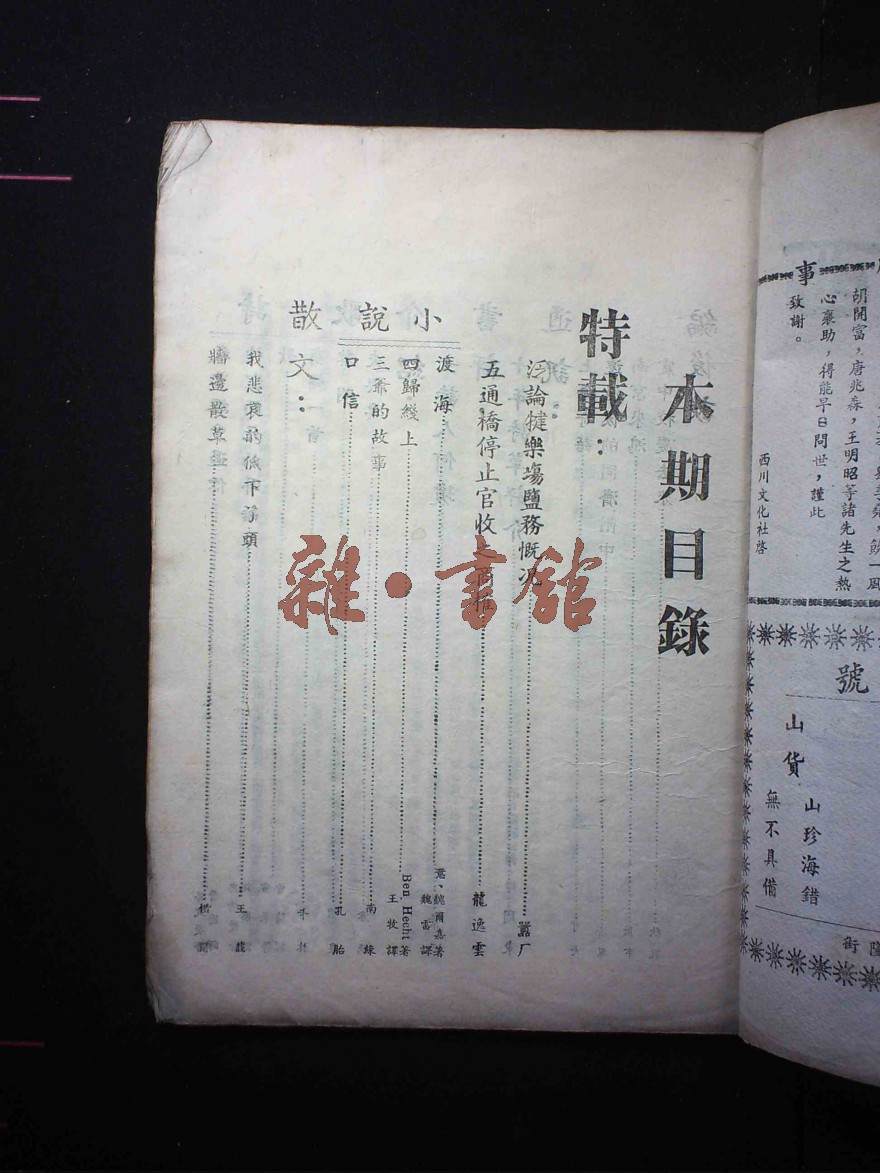 本期目錄
特載：
泛論犍樂塲鹽務慨况
嚣厂
五通橋停止官收之商搉
龍逸雲
小說
渡海
魏爾嘉著
魏雷譯
四歸綫上
Ben, Hecht著
王牧譯
三爺的故事
南綠
口信
孔胎
散文：
我悲哀的低下了頭
王
牆邊散草
雜·書館
事
胡開富，唐兆森，王明昭等諸先生之熱
心襄助，得能早日問世，謹此
致謝。
西川文化社啓
號
山貨
山珍海錯
無不具備
街